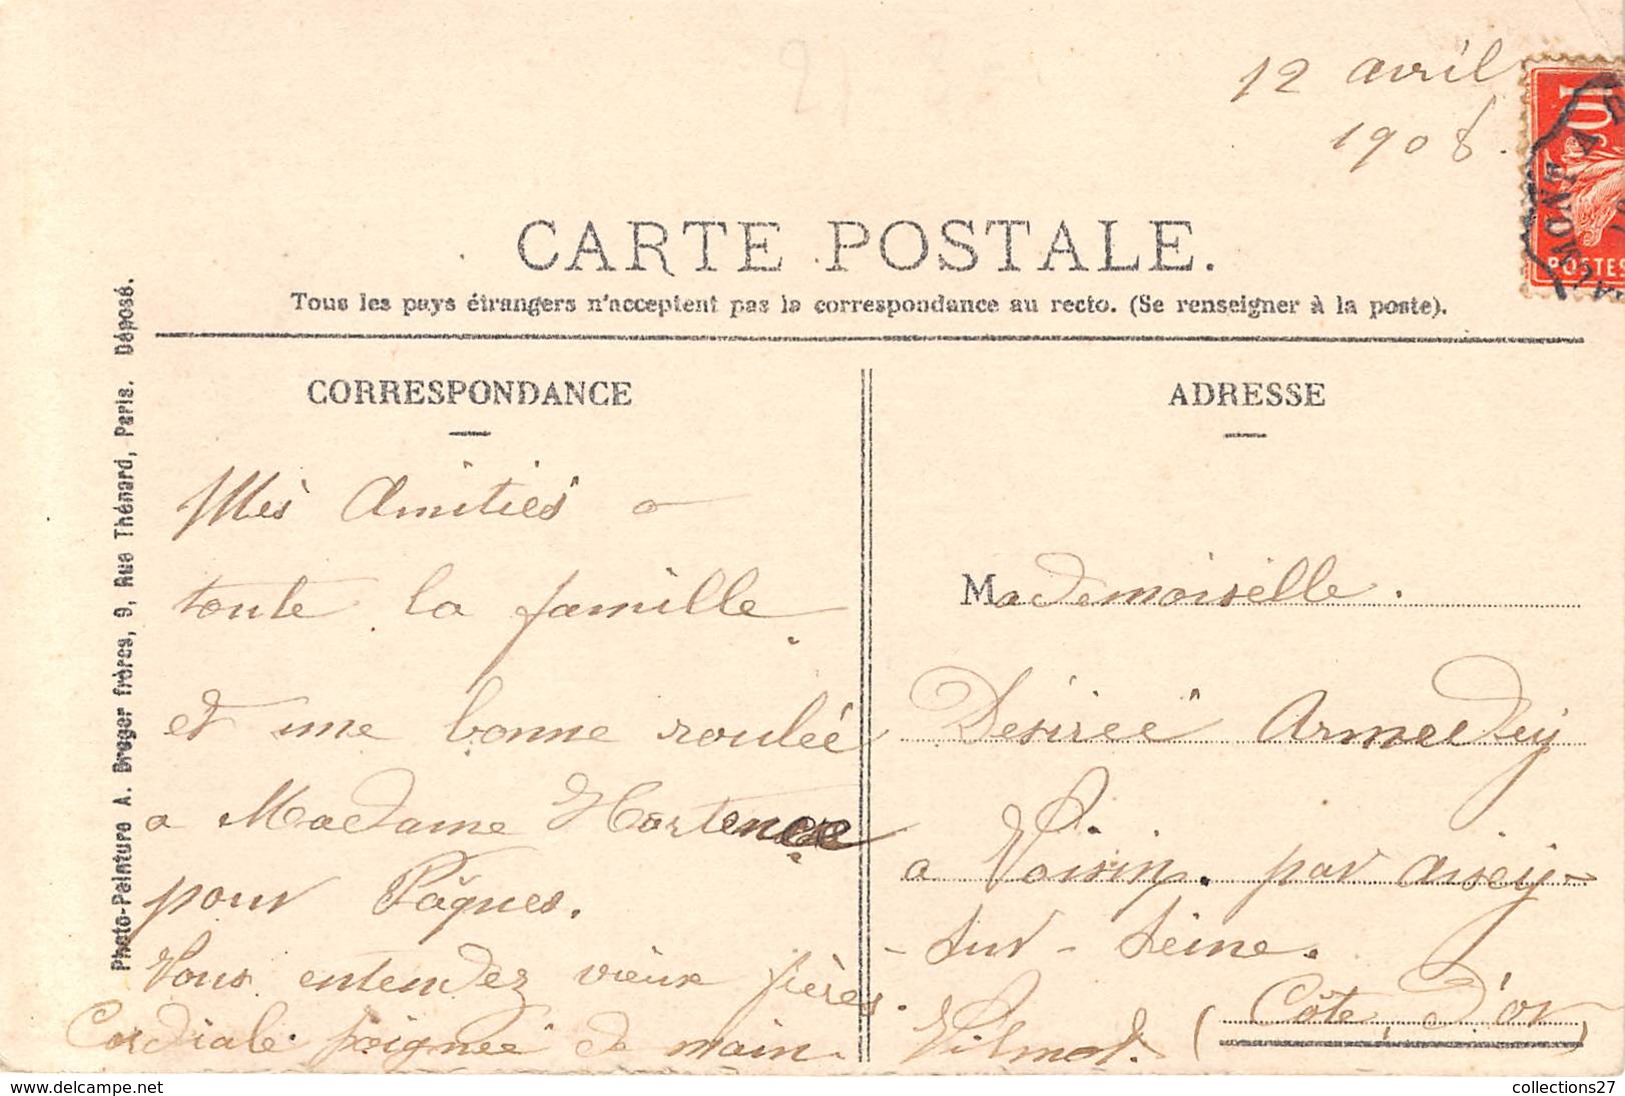 12 avril
1908.
10c
POSTES
CARTE POSTALE.
Tous les pays étrangers n'acceptent pas la correspondance au recto. (Se renseigner à la poste).
CORRESPONDANCE
Mès Amitiés a
toute la famille
et une bonne roulée
a Madame Hortence
pour Pâques.
Vous entendez vieux frères.
Cordiale poignée de main.
Vilmot.
ADRESSE
Mademoiselle.
Désirée Armedey
a Voisin. par Aisey-
- sur - Seine.
(Côte, d'or)
Photo-Peinture A. Breger frères, 9, Rue Thénard, Paris. Déposé.
collections27